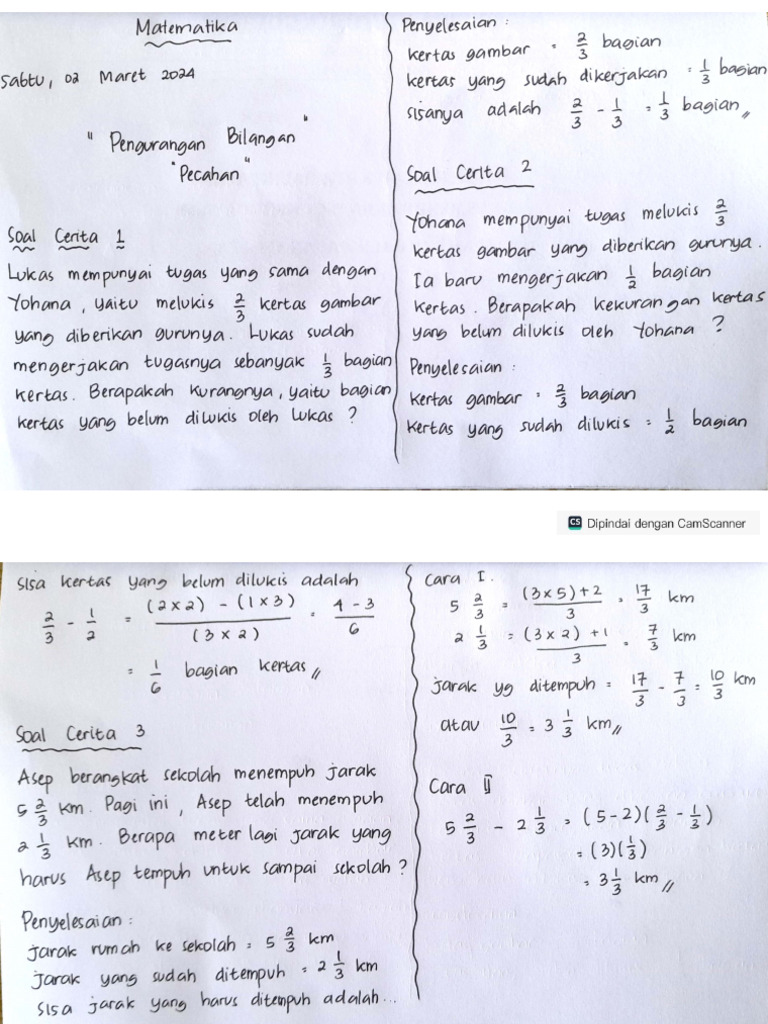 Matematika
Sabtu, 02 Maret 2024
" Pengurangan Bilangan "
" Pecahan "
Soal Cerita 1
Lukas mempunyai tugas yang sama dengan
Yohana, yaitu melukis 2/3 kertas gambar
yang diberikan gurunya. Lukas sudah
mengerjakan tugasnya sebanyak 1/3 bagian
kertas. Berapakah kurangnya, yaitu bagian
kertas yang belum dilukis oleh Lukas ?
Penyelesaian :
kertas gambar = 2/3 bagian
kertas yang sudah dikerjakan = 1/3 bagian
sisanya adalah 2/3 - 1/3 = 1/3 bagian //
Soal Cerita 2
Yohana mempunyai tugas melukis 2/3
kertas gambar yang diberikan gurunya.
Ia baru mengerjakan 1/2 bagian
kertas. Berapakah kekurangan kertas
yang belum dilukis oleh Yohana ?
Penyelesaian :
kertas gambar = 2/3 bagian
kertas yang sudah dilukis = 1/2 bagian
CS Dipindai dengan CamScanner
Sisa kertas yang belum dilukis adalah
2/3 - 1/2 = (2 x 2) - (1 x 3) / (3 x 2) = 4 - 3 / 6
= 1/6 bagian kertas //
Soal Cerita 3
Asep berangkat sekolah menempuh jarak
5 2/3 km. Pagi ini, Asep telah menempuh
2 1/3 km. Berapa meter lagi jarak yang
harus Asep tempuh untuk sampai sekolah ?
Penyelesaian :
Jarak rumah ke sekolah = 5 2/3 km
Jarak yang sudah ditempuh = 2 1/3 km
Sisa jarak yang harus ditempuh adalah...
Cara I.
5 2/3 = (3 x 5) + 2 / 3 = 17/3 km
2 1/3 = (3 x 2) + 1 / 3 = 7/3 km
Jarak yg ditempuh = 17/3 - 7/3 = 10/3 km
atau 10/3 = 3 1/3 km //
Cara II
5 2/3 - 2 1/3 = (5 - 2)(2/3 - 1/3)
= (3)(1/3)
= 3 1/3 km //